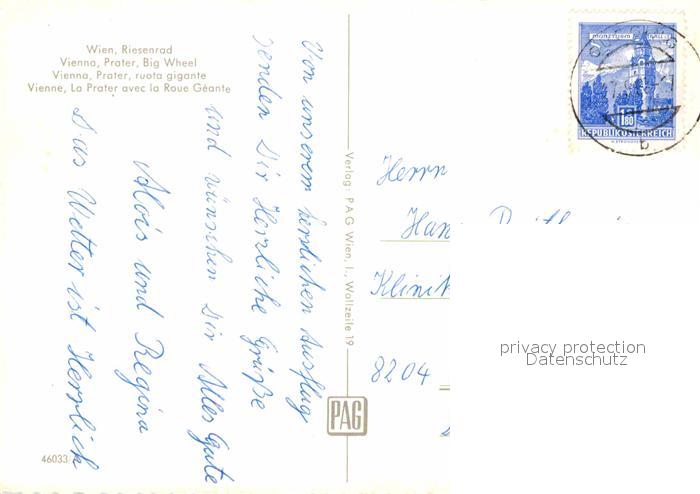 Wien, Riesenrad
Vienna, Prater, Big Wheel
Vienna, Prater, ruota gigante
Vienne, La Prater avec la Roue Géante
Von unserem herrlichen Ausflug
senden Dir Herzliche Grüße
und wünschen Dir Alles Gute
Alois und Regina
Das Wetter ist Herrlich
46033
Verlag: PAG Wien, I., Wollzeile 19
PAG
Münzturm
1.80
REPUBLIK ÖSTERREICH
b
Herrn
Han
Klinik
8204
privacy protection
Datenschutz